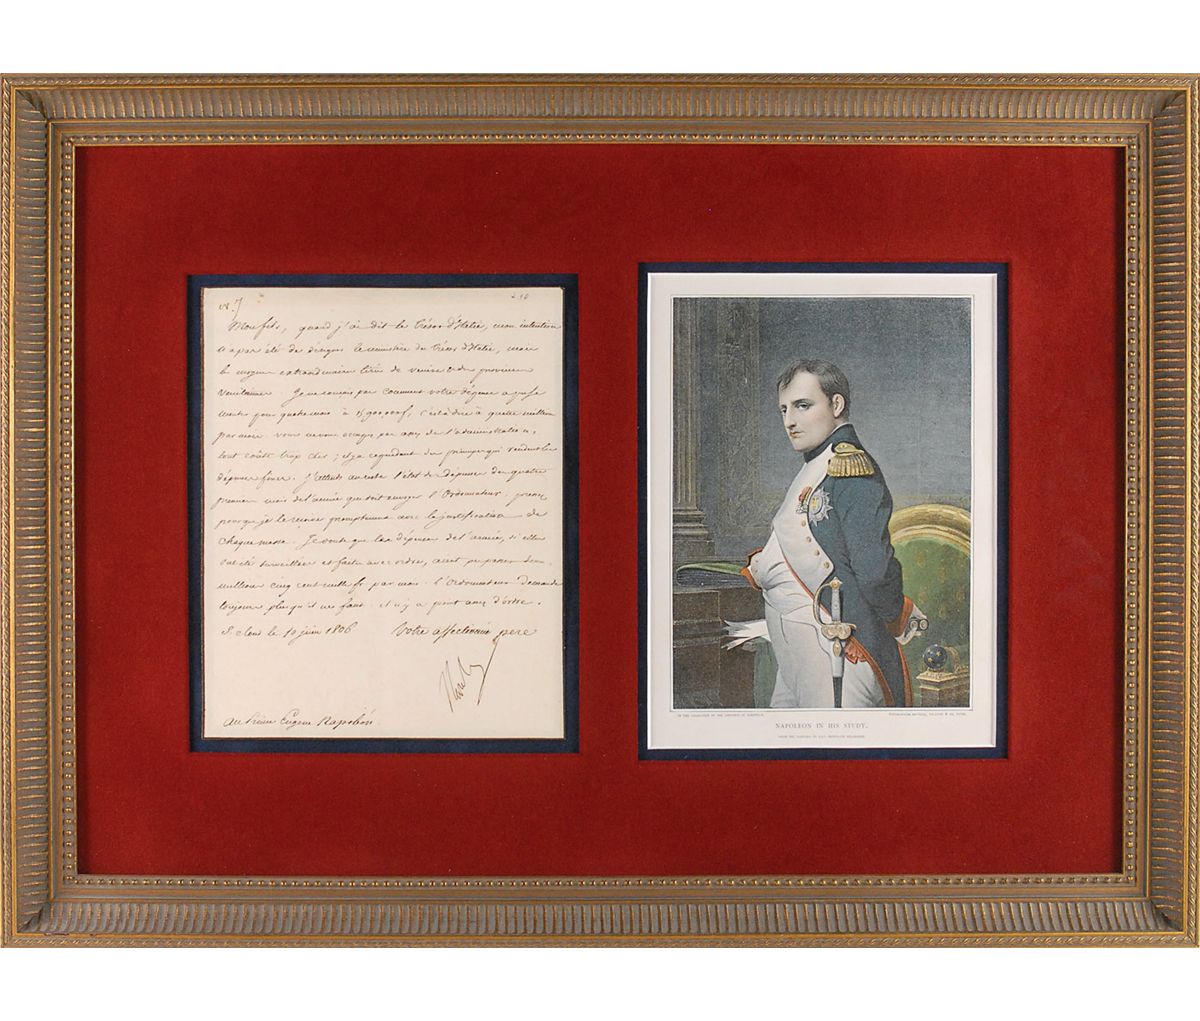 N. 7
Mon fils, quand j'ai dit le Trésor d'Italie, mon intention
n'a pas été de désigner le ministère du Trésor d'Italie, mais
le moyen extraordinaire tiré de venise & des provinces
Vénitiennes. Je ne conçois pas comment votre dépense a pu se
monter pour quatre mois à 15,900,000f, c'est à dire à quatre millions
par mois. vous ne vous occupez pas assez de l'administration,
tout coûte trop cher; il y a cependant des principes qui rendent les
dépenses fixes. J'attends ensuite l'état des dépenses des quatre
premiers mois de l'armée que doit envoyer l'Ordonnateur, prenez
pour que je le reçoive promptement avec la justification de
chaque masse. Je voute que les dépenses de l'armée, si elles
ont été surveillées et faites avec ordre, aient pu passer deux
millions cinq cent mille fr par mois. l'Ordonnateur demande
toujours plus qu'il ne faut. et il n'y a point assez d'ordre.
S. Cloud le 10 juin 1806 Votre affectionné père
Au Prince Eugène Napoléon
NAPOLEON IN HIS STUDY.